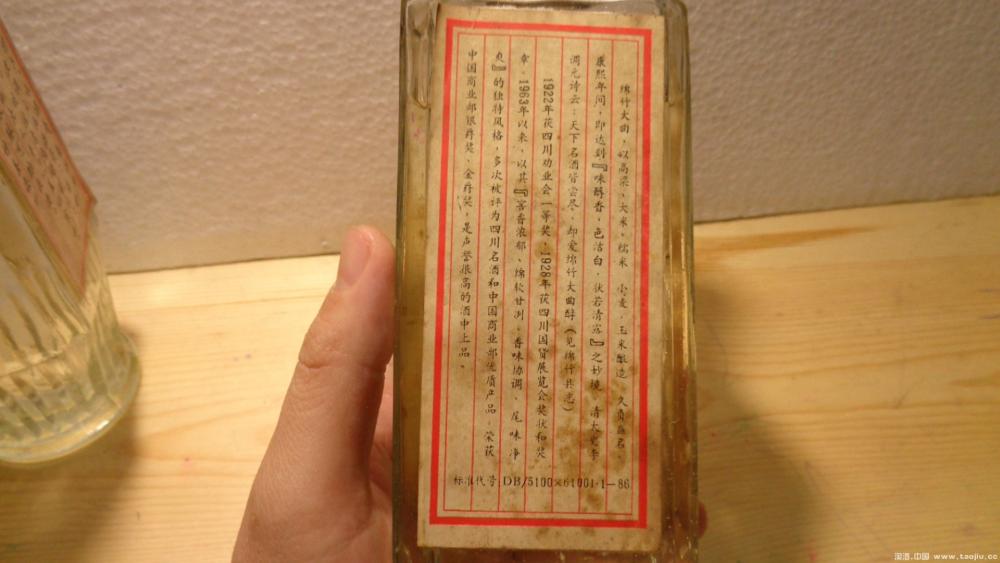 绵竹大曲，以高粱、大米、糯米、小麦、玉米酿造，久负盛名。
康熙年间，即达到『味醇香，色洁白，状若清露』之妙境。清太史李
调元诗云：天下名酒皆尝尽，却爱绵竹大曲醇（见绵竹县志）
1922年获四川劝业会一等奖，1928年获四川国货展览会奖状和奖
章。1963年以来，以其『窖香浓郁、绵软甘冽、香味协调、尾味净
爽』的独特风格，多次被评为四川名酒和中国商业部优质产品，荣获
中国商业部银爵奖、金爵奖，是声誉很高的酒中上品。
标准代号 DB/5100×61001·1—86
淘酒.中国 www.taojiu.cc